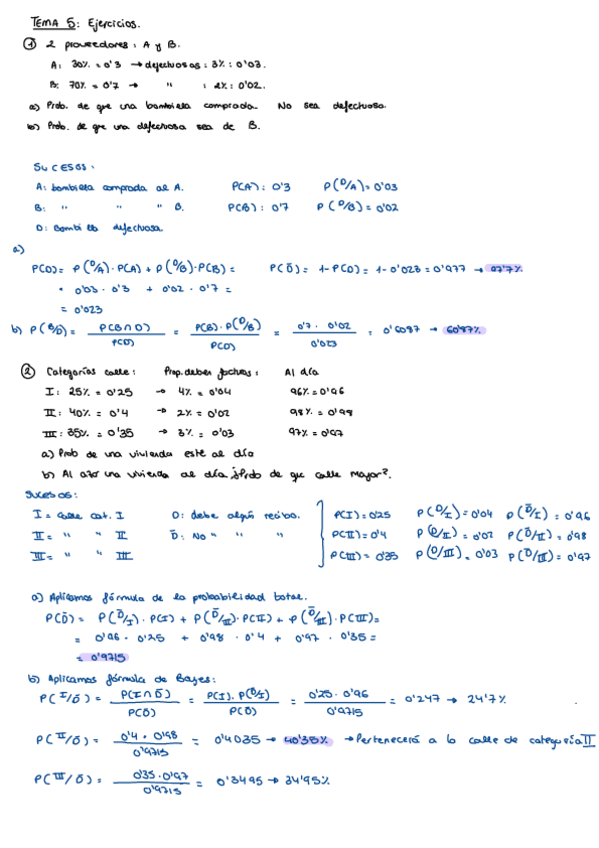 TEMA 5: Ejercicios.
① 2 proveedores: A y B.
A: 30% = 0'3 → defectuosas: 3% : 0'03.
B: 70% = 0'7 → " : 2% : 0'02.
a) Prob. de que una bombilla comprada No sea defectuosa.
b) Prob. de que una defectuosa sea de B.
SUCESOS:
A: bombilla comprada al A. P(A): 0'3 P(D/A)= 0'03
B: " " " B. P(B): 0'7 P(D/B)= 0'02
D: Bombilla defectuosa
a)
P(D)= P(D/A)·P(A) + P(D/B)·P(B)= P(D̅)= 1-P(D)= 1-0'023=0'977 → 97'7%
= 0'03 · 0'3 + 0'02 · 0'7 =
= 0'023
b) P(B/D)= P(B∩D)/P(D) = P(B)·P(D/B)/P(D) = 0'7 · 0'02/0'023 = 0'6087 → 60'87%
② Categorías calle: Prop. deben facturas: Al día
I: 25% = 0'25 → 4% = 0'04 96% = 0'96
II: 40% = 0'4 → 2% = 0'02 98% = 0'98
III: 35% = 0'35 → 3% = 0'03 97% = 0'97
a) Prob de una vivienda esté al día
b) Al azar una vivienda al día ¿Prob de que calle mayor?.
SUCESOS:
I = calle cat. I D: debe algún recibo. P(I)=0'25 P(D/I)=0'04 P(D̅/I)= 0'96
II = " " II D̅: No " " P(II)=0'4 P(D/II)=0'02 P(D̅/II)=0'98
III = " " III P(III)=0'35 P(D/III)=0'03 P(D̅/III)=0'97
a) Aplicamos fórmula de la probabilidad total.
P(D̅)= P(D̅/I)·P(I) + P(D̅/II)·P(II) + P(D̅/III)·P(III)=
= 0'96 · 0'25 + 0'98 · 0'4 + 0'97 · 0'35 =
= 0'9715
b) Aplicamos fórmula de Bayes:
P(I/D̅) = P(I∩D̅)/P(D̅) = P(I)·P(D̅/I)/P(D̅) = 0'25 · 0'96/0'9715 = 0'247 → 24'7%
P(II/D̅) = 0'4 · 0'98/0'9715 = 0'4035 → 40'35% → Pertenecerá a la calle de categoría II
P(III/D̅) = 0'35 · 0'97/0'9715 = 0'3495 → 34'95%